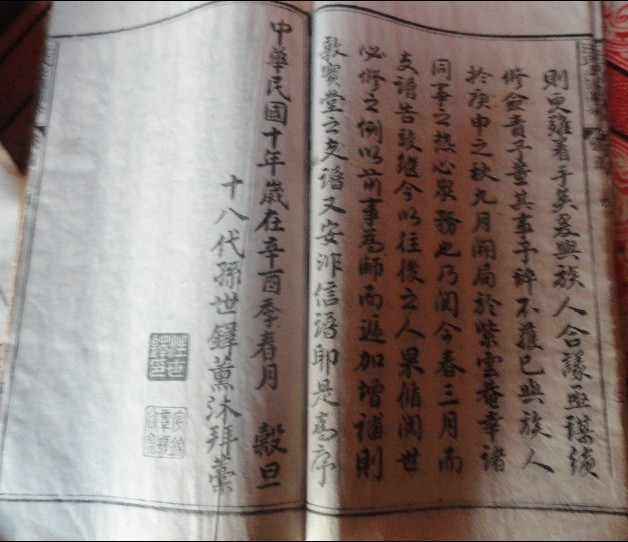 則更難着手矣爰與族人合議亟謀續
修僉責予董其事予辭不獲已與族人
於庚申之秋九月開局於紫雲菴幸諸
同事之熱心眾務也乃閱今春三月而
支譜告竣繼今以往後之人果循閱世
必修之例以前事為師而遞加增補則
敦實堂之支譜又安非信譜耶是為序
中華民國十年歲在辛酉季春月 穀旦
十八代孫世鐸薰沐拜藁